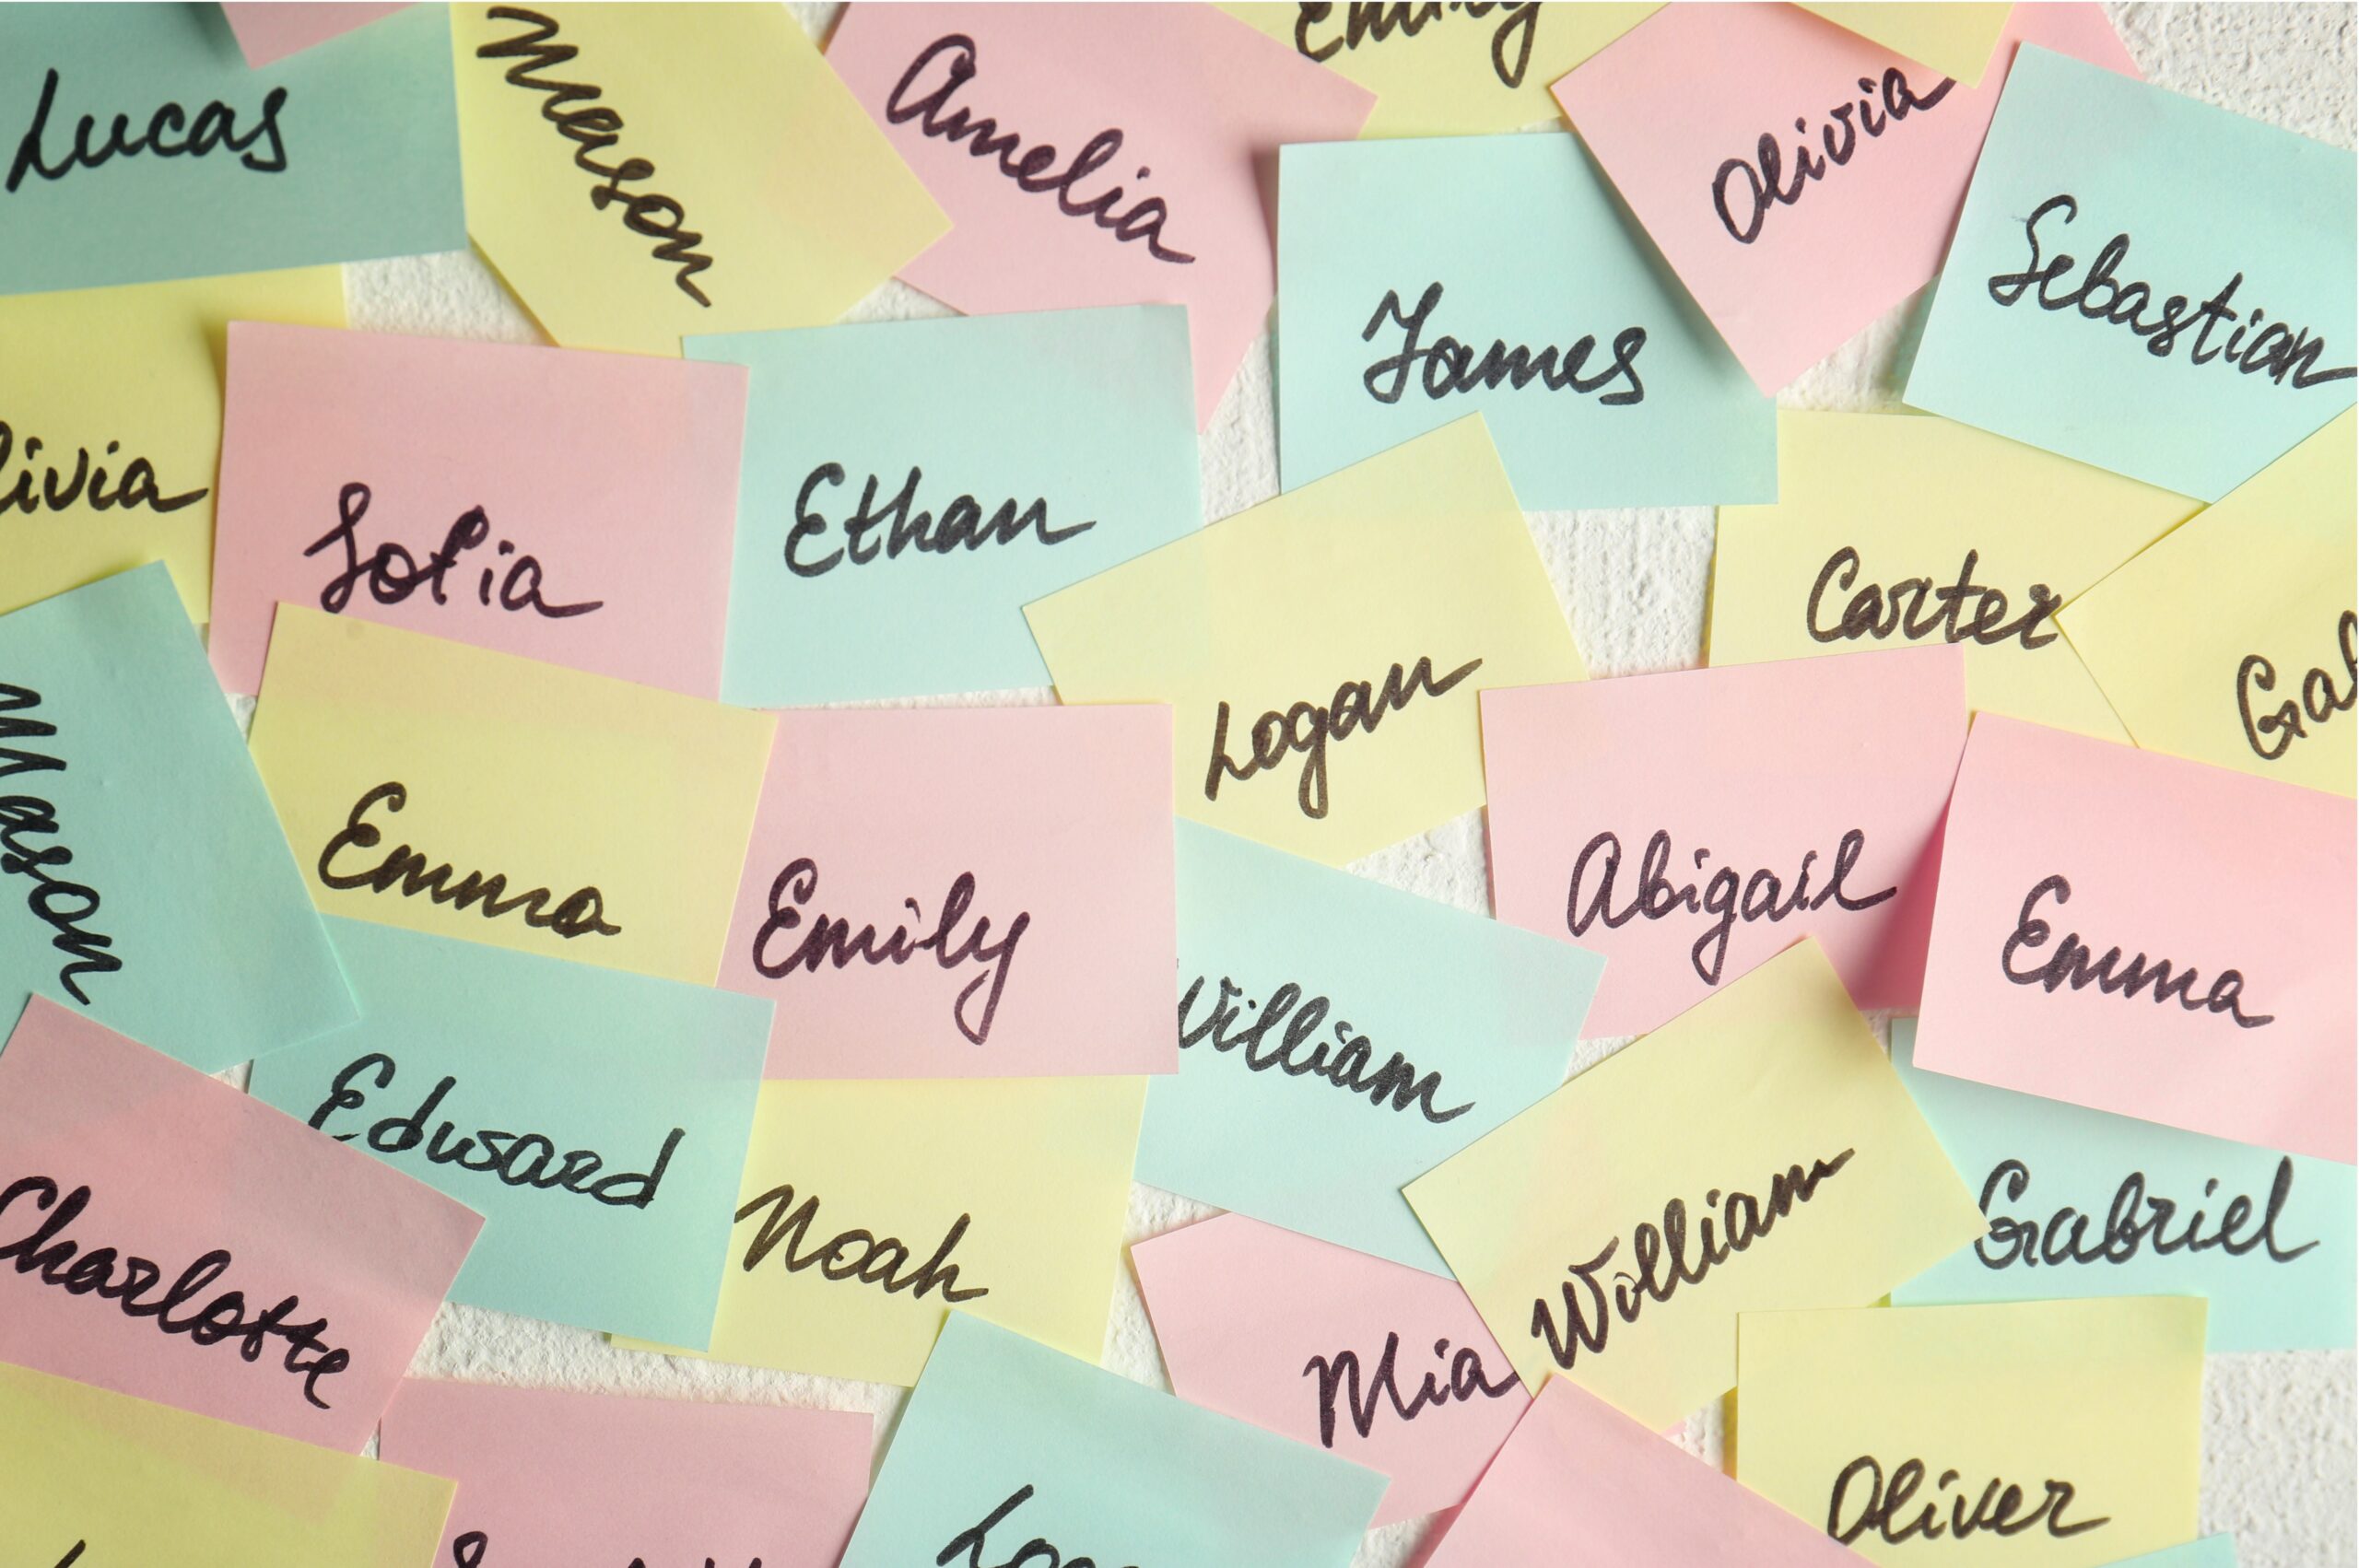 Lucas
Mason
Amelia
Emily
Olivia
Sebastian
James
livia
Sofia
Ethan
Carter
Logan
Gab
Mason
Emma
Emily
Abigail
Emma
William
Edward
Noah
Charlotte
William
Gabriel
Mia
Oliver